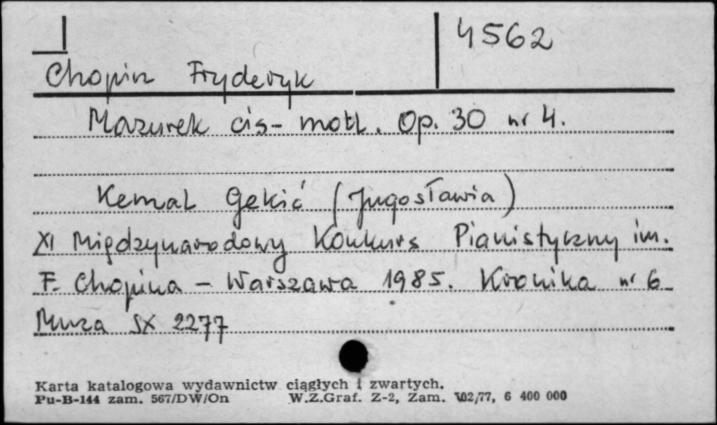 4562
Chopin Fryderyk
Mazurek cis-moll. Op. 30 nr 4.
Kemal Gekić (Jugosławia)
XI Międzynarodowy Konkurs Pianistyczny im.
F. Chopina - Warszawa 1985. Kronika nr 6
Muza SX 2277
Karta katalogowa wydawnictw ciągłych i zwartych.
Pu-B-144 zam. 567/DW/On W.Z.Graf. Z-2, Zam. 102/77, 6 400 000